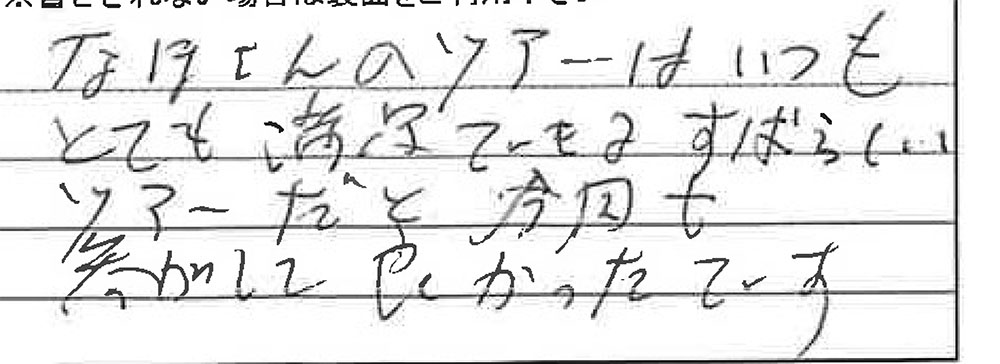 ※書ききれない場合は裏面をご利用下さい
さんのツアーはいつも
とても満足できるすばらしい
ツアーだと 今回も
参加して良かったです